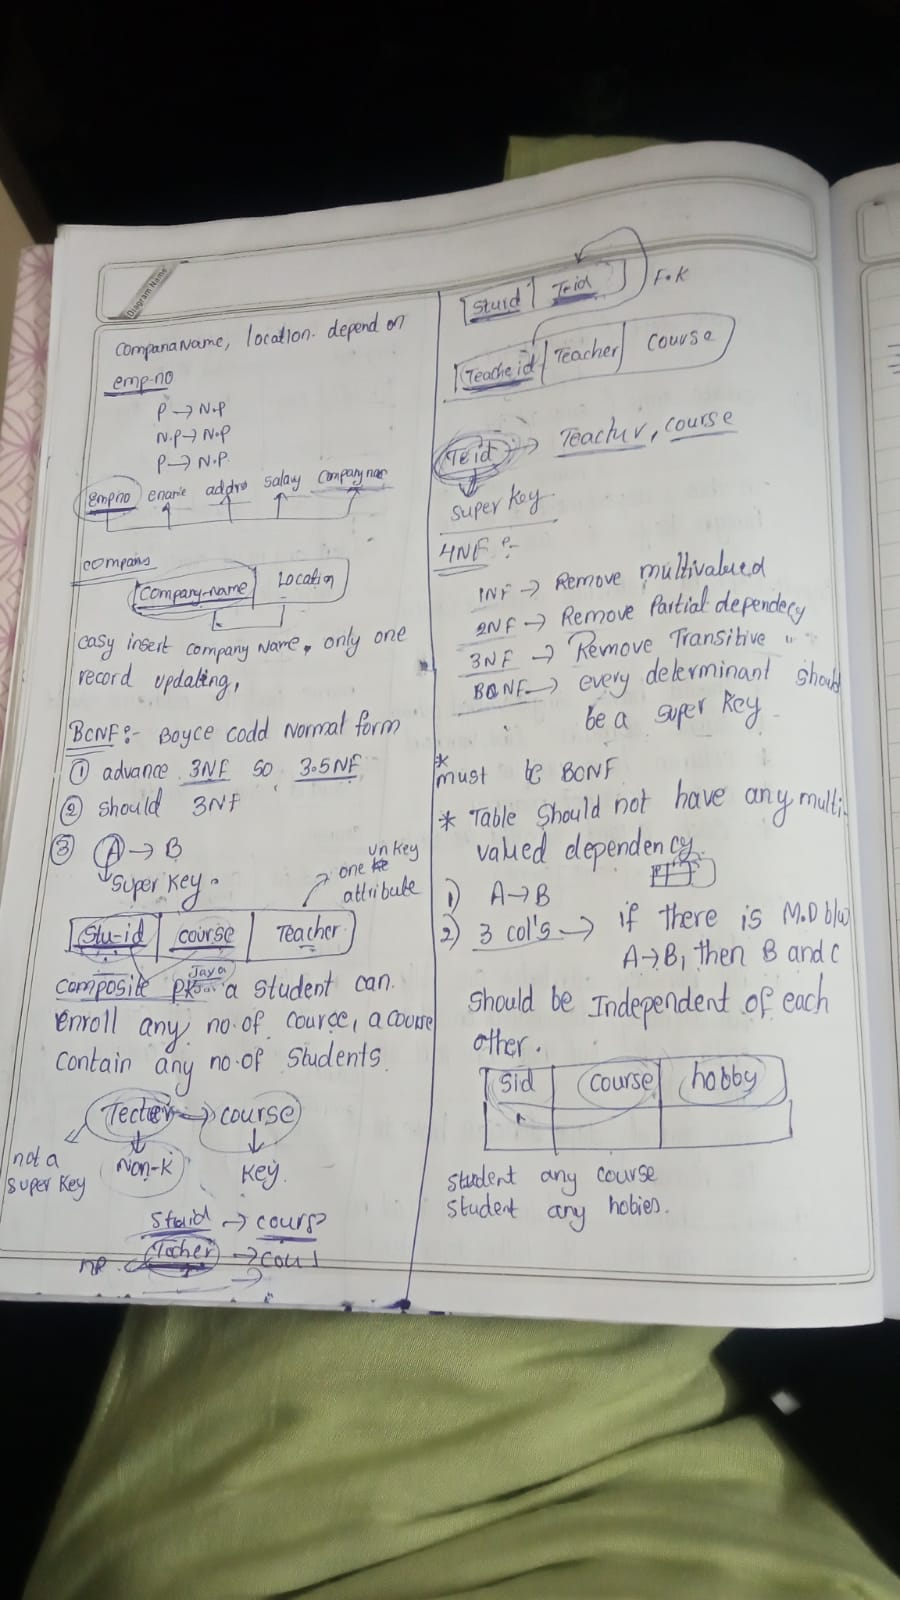 Diagram Name
CompanaName, location. depend on
emp-no
P → N.P
N.P → N.P
P → N.P
empno ename addre salary Company nam
company-name Location
easy insert company Name, only one
record updating,
BCNF:- Boyce codd Normal form
① advance 3NF so 3.5NF
② should 3NF
③ A → B
Super Key.
un key
one
attribute
Stu-id course Teacher
Java
composite PK a student can
enroll any no.of cource, a course
contain any no.of students.
→ course
not a
super key
Non-K Key.
Stuid →
→
Stuid Teid F.K
Teacheid Teacher course
Teid → Teacher, course
super key
4NF:-
1NF → Remove multivalued
2NF → Remove Partial dependecy
3NF → Remove Transitive "
BCNF → every determinant should
be a super key
* must be BCNF
* Table should not have any multi-
valued dependency.
1) A → B
2) 3 col's → if there is M.D b/w
A → B, then B and C
should be Independent of each
other.
sid course hobby
student any course
student any hobies.